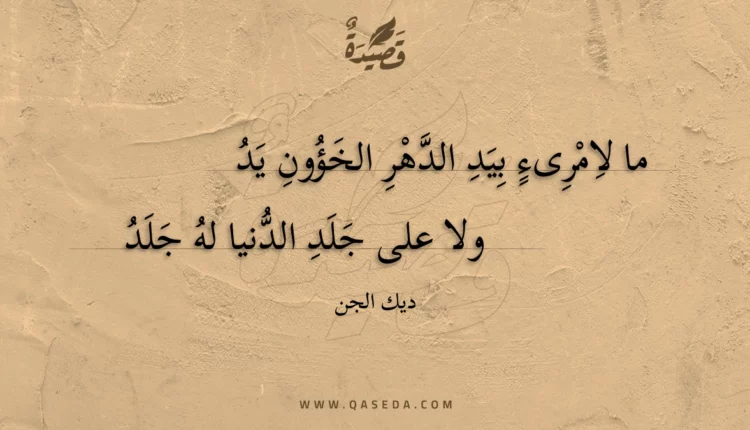 قَصِيْدَةٌ
ما لاِمْرِىءٍ بِيَدِ الدَّهْرِ الخَؤُونِ يَدُ
ولا على جَلَدِ الدُّنيا لهُ جَلَدُ
ديك الجن
WWW.QASEDA.COM